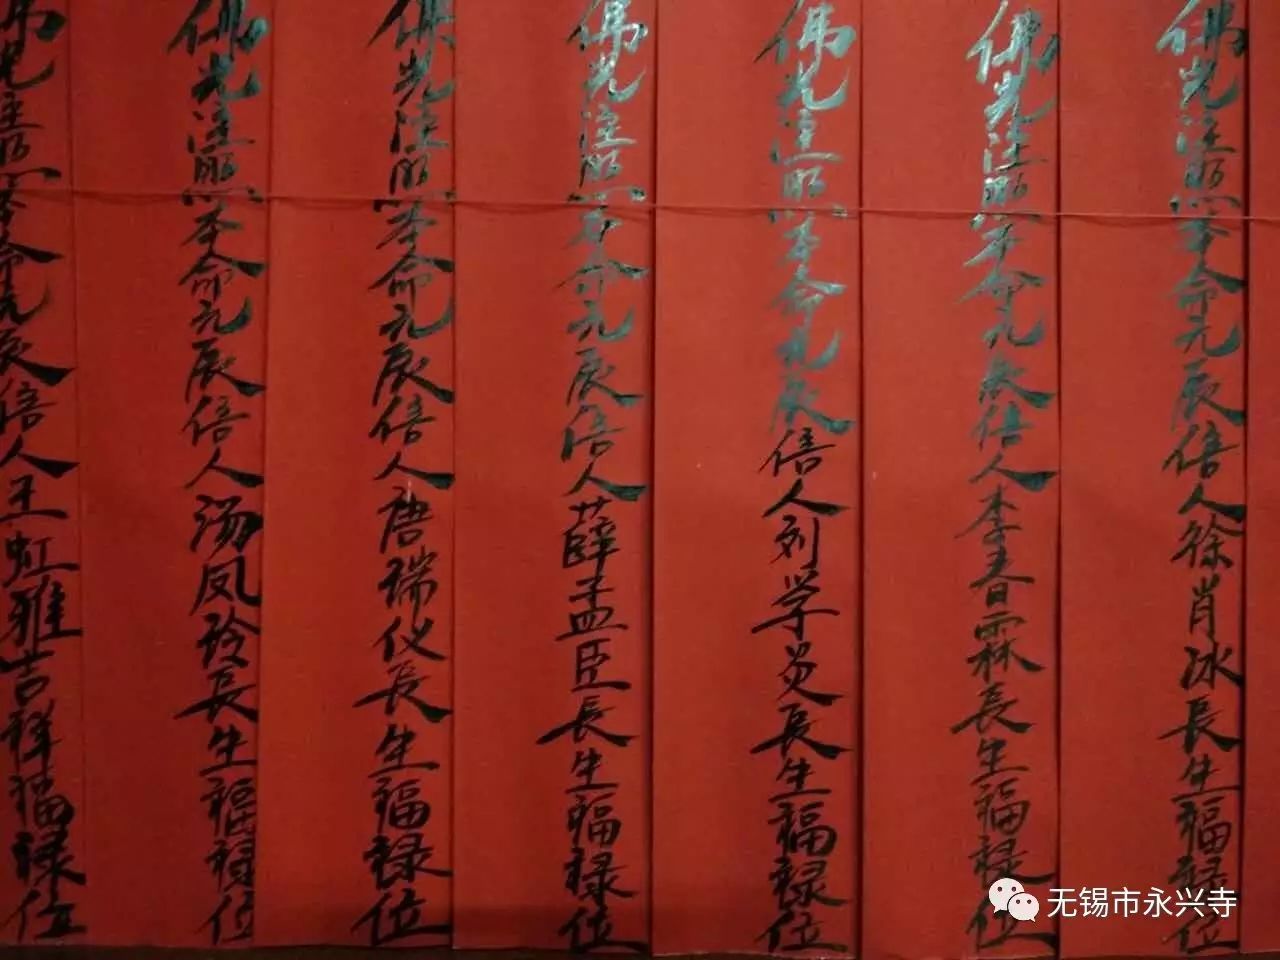 佛光注照本命元辰信人徐肖冰長生福祿位
佛光注照本命元辰信人李春霖長生福祿位
佛光注照本命元辰信人刘学炎長生福祿位
佛光注照本命元辰信人薛孟臣長生福祿位
佛光注照本命元辰信人唐瑞仪長生福祿位
佛光注照本命元辰信人汤凤玲長生福祿位
佛光注照本命元辰信人王虹雅吉祥福祿位
无锡市永兴寺